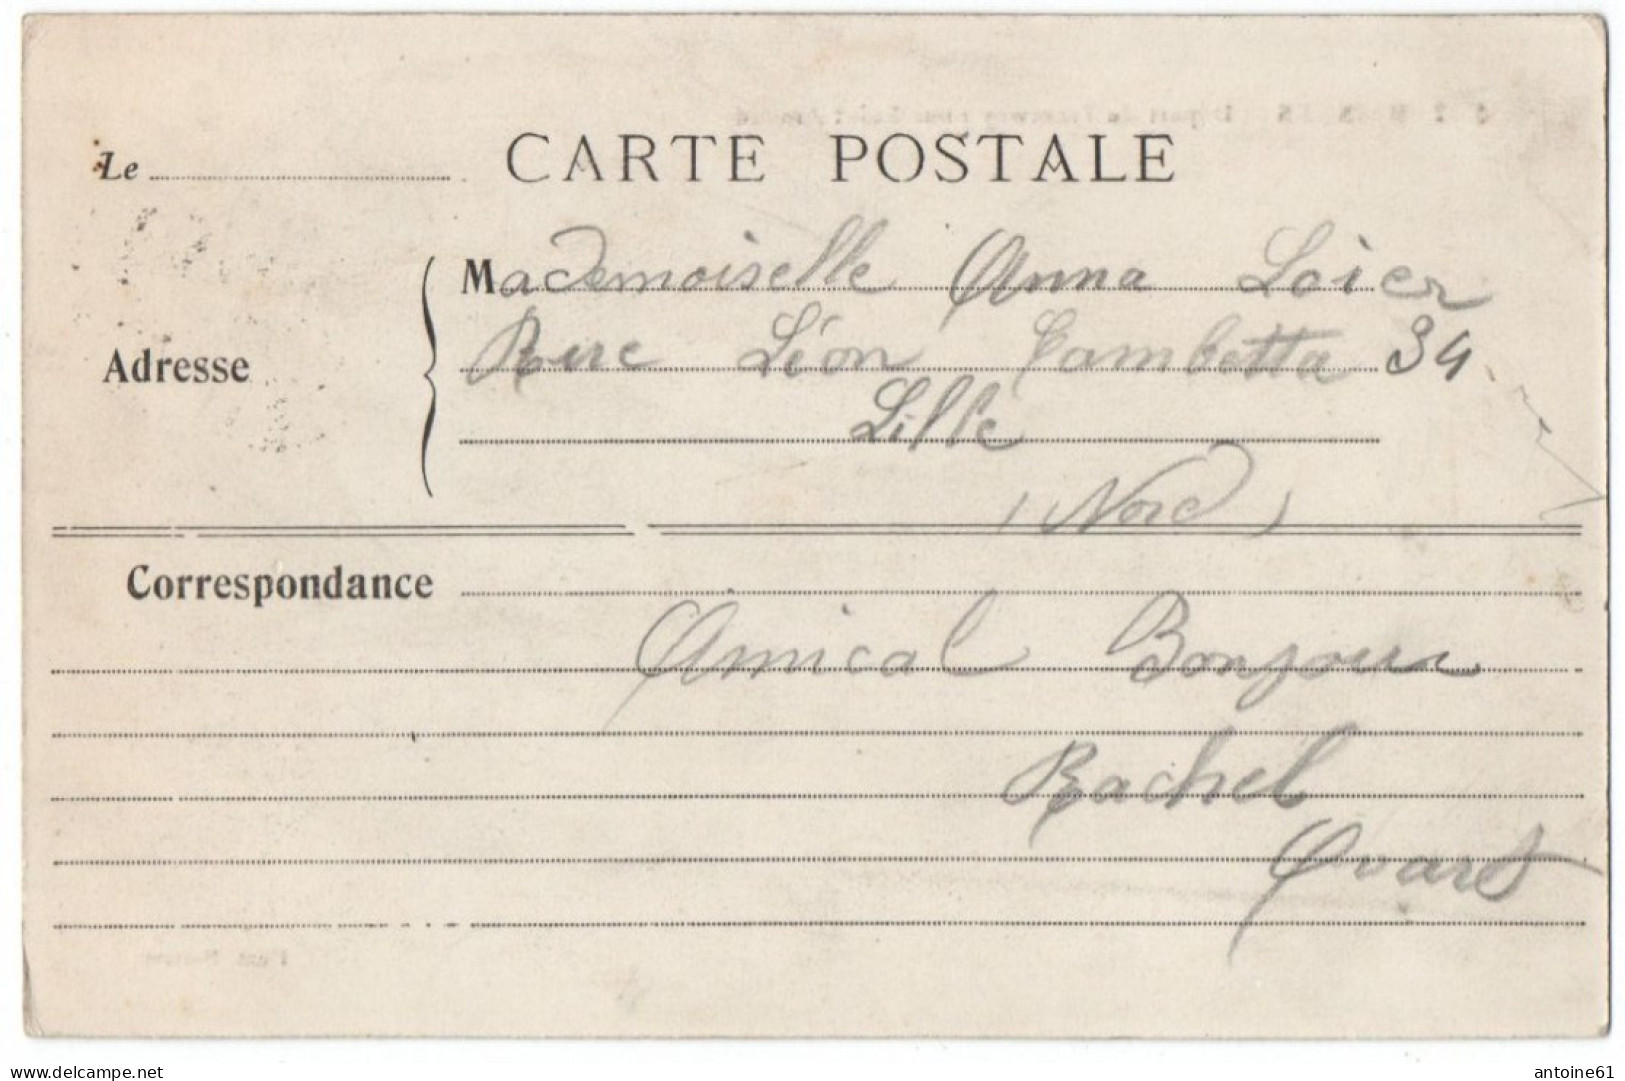 CARTE POSTALE
Le
Mademoiselle Anna Loier
Adresse
Rue Léon Gambetta 34
Lille
(Nord)
Correspondance
Amical Bonjour
Rachel
www.delcampe.net
antoine61